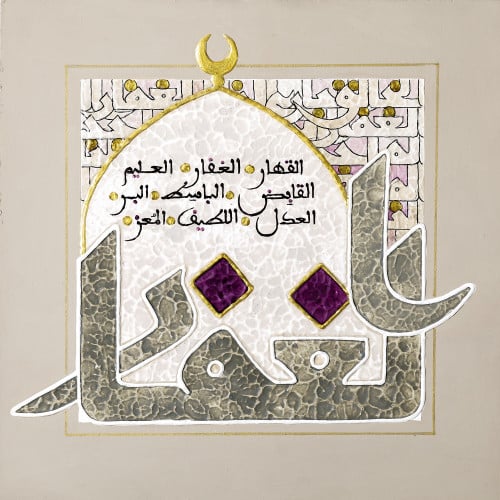 القهار الغفار العليم
القابض الباسط البر
العدل اللطيف المعز
الغفار